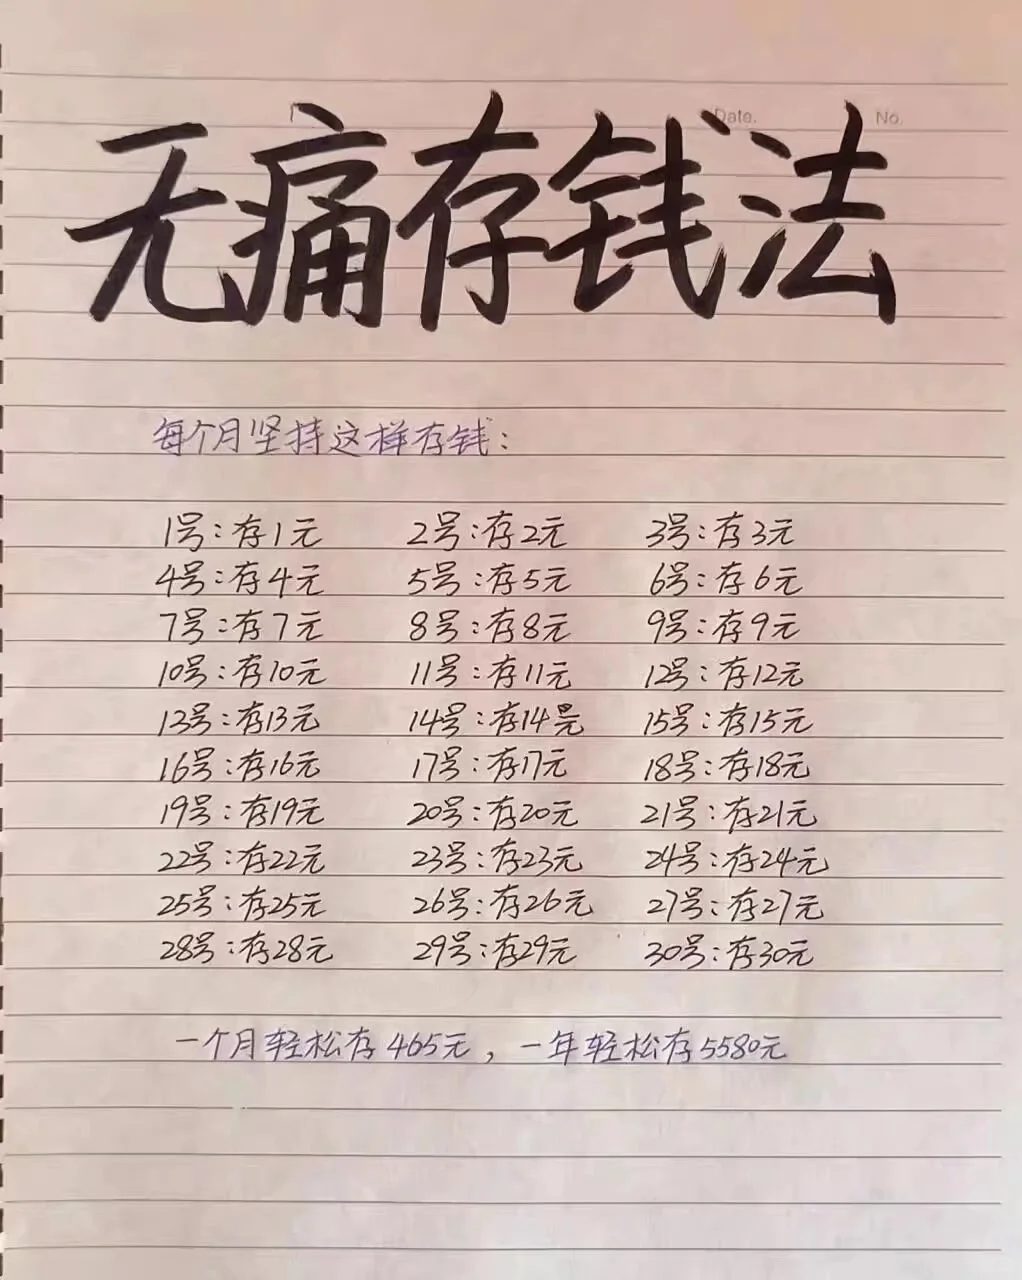 Date. No.
无痛存钱法
每个月坚持这样存钱：
1号：存1元 2号：存2元 3号：存3元
4号：存4元 5号：存5元 6号：存6元
7号：存7元 8号：存8元 9号：存9元
10号：存10元 11号：存11元 12号：存12元
13号：存13元 14号：存14元 15号：存15元
16号：存16元 17号：存17元 18号：存18元
19号：存19元 20号：存20元 21号：存21元
22号：存22元 23号：存23元 24号：存24元
25号：存25元 26号：存26元 27号：存27元
28号：存28元 29号：存29元 30号：存30元
一个月轻松存465元，一年轻松存5580元